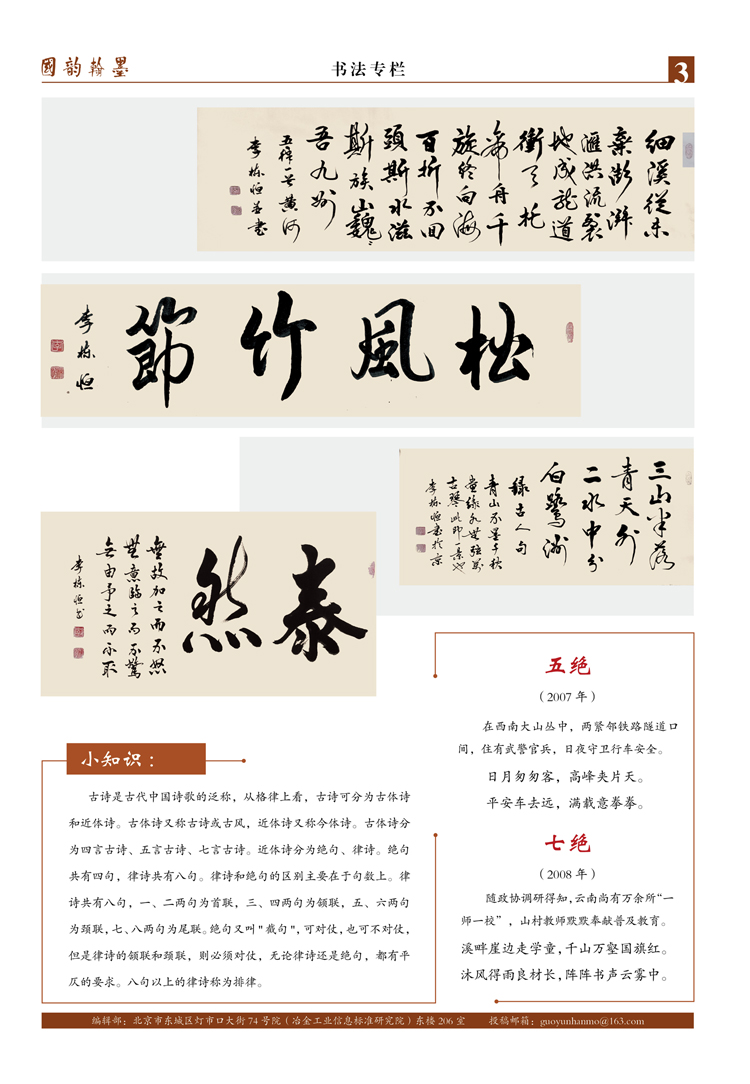 國韵翰墨
书法专栏
3
细溪從来
弃澎湃
滙洪流裂
地成龍道
衝天扥
舟千
旋终向海
百折不回
頭斯水滋
斯族山巍
吾九州
五律一首黄河
李栋恒并书
松風竹節
李栋恒
三山半落
青天外
二水中分
白鹭洲
録古人句
青山不墨千秋
畫绿水無弦万
古琴此即一景也
李栋恒書於京
泰然
無故加之而不怒
無意臨之而不驚
無由予之而不取
李栋恒书
五绝
（2007 年）
在西南大山丛中，两紧邻铁路隧道口
间，住有武警官兵，日夜守卫行车安全。
日月匆匆客，高峰夹片天。
平安车去远，满载意拳拳。
七绝
（2008 年）
随政协调研得知,云南尚有万余所“一
师一校”，山村教师默默奉献普及教育。
溪畔崖边走学童,千山万壑国旗红。
沐风得雨良材长,阵阵书声云雾中。
小知识：
古诗是古代中国诗歌的泛称，从格律上看，古诗可分为古体诗
和近体诗。古体诗又称古诗或古风，近体诗又称今体诗。古体诗分
为四言古诗、五言古诗、七言古诗。近体诗分为绝句、律诗。绝句
共有四句，律诗共有八句。律诗和绝句的区别主要在于句数上。律
诗共有八句，一、二两句为首联，三、四两句为颔联，五、六两句
为颈联,七、八两句为尾联。绝句又叫"截句",可对仗,也可不对仗,
但是律诗的颔联和颈联，则必须对仗，无论律诗还是绝句，都有平
仄的要求。八句以上的律诗称为排律。
编辑部：北京市东城区灯市口大街 74 号院（冶金工业信息标准研究院）东楼 206 室 投稿邮箱：guoyunhanmo@163.com